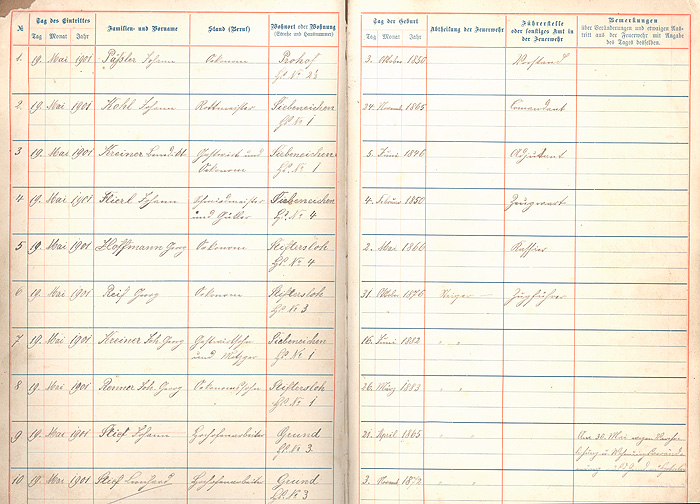 №
Tag des Eintrittes
Tag Monat Jahr
Familien- und Vorname
Stand (Beruf)
Wohnort oder Wohnung
(Straße und Hausnummer)
1. 19. Mai 1901 Päßler Johann Oekonom Prohof
Hs. No 2
2. 19. Mai 1901 Kohl Johann Rottmeister Siebeneichen
Hs. No 1
3 19. Mai 1901 Kreiner Benedikt Gastwirt und Siebeneichen
Oekonom Hs. No 1
4 19. Mai 1901 Johann Schmiedmeister Siebeneichen
und Gütler Hs. No 4
5 19. Mai 1901 Hoffmann Georg Oekonom
Hs. No 4
6 19. Mai 1901 Reif Georg Oekonom
Hs. No 3
7 19. Mai 1901 Kreiner Joh. Georg Gastwirtssohn Siebeneichen
und Metzger Hs. No 1
8 19. Mai 1901 Renner Joh. Georg Oekonomssohn
Hs. No 1
9 19. Mai 1901 Johann Grund
Hs. No 3.
10 19. Mai 1901 Leonhard Grund
Hs. No 3
Tag der Geburt
Tag Monat Jahr
Abtheilung der Feuerwehr
Führerstelle
oder sonstiges Amt in
der Feuerwehr
Bemerkungen
über Veränderungen und etwaigen Aus-
tritt aus der Feuerwehr mit Angabe
des Tages desselben.
3. Oktober 1850 Vorstand
24. Novemb. 1865 Comandant
5. Juni 1846 Adjutant
4. Februar 1850 Zeugwart
2. Mai 1866 Kassier
31. Oktober 1876 Steiger Zugführer
16. Juni 1882 " "
26. März 1883 " "
21. April 1865 " " Am 30. Mai wegen
3. Novemb. 1873 " "